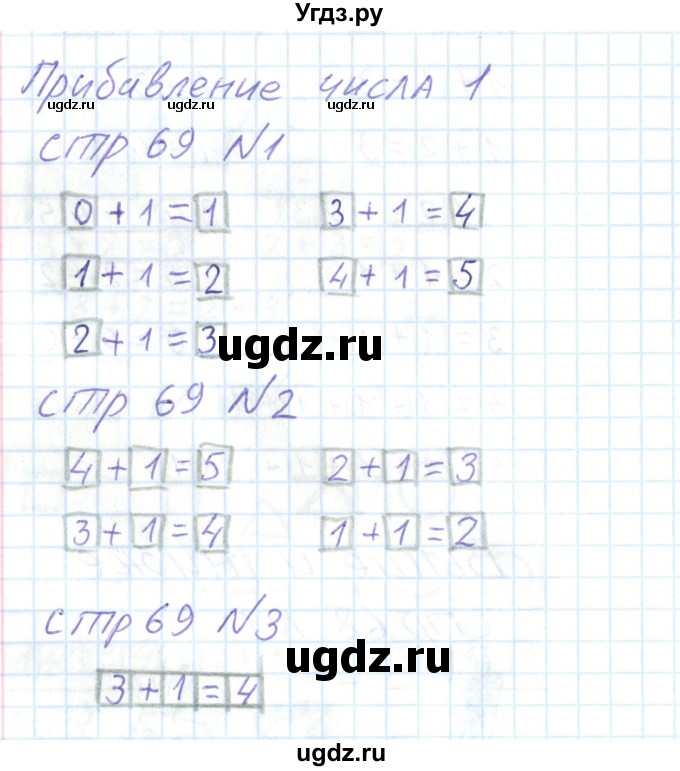 Угдз.ру
Прибавление числа 1
ugdz.ru ugdz.ru ugdz.ru
стр 69 №1
0 + 1 = 1 3 + 1 = 4
1 + 1 = 2 4 + 1 = 5
2 + 1 = 3
ugdz.ru
стр 69 №2
4 + 1 = 5 2 + 1 = 3
3 + 1 = 4 1 + 1 = 2
стр 69 №3
ugdz.ru
3 + 1 = 4
ugdz.ru